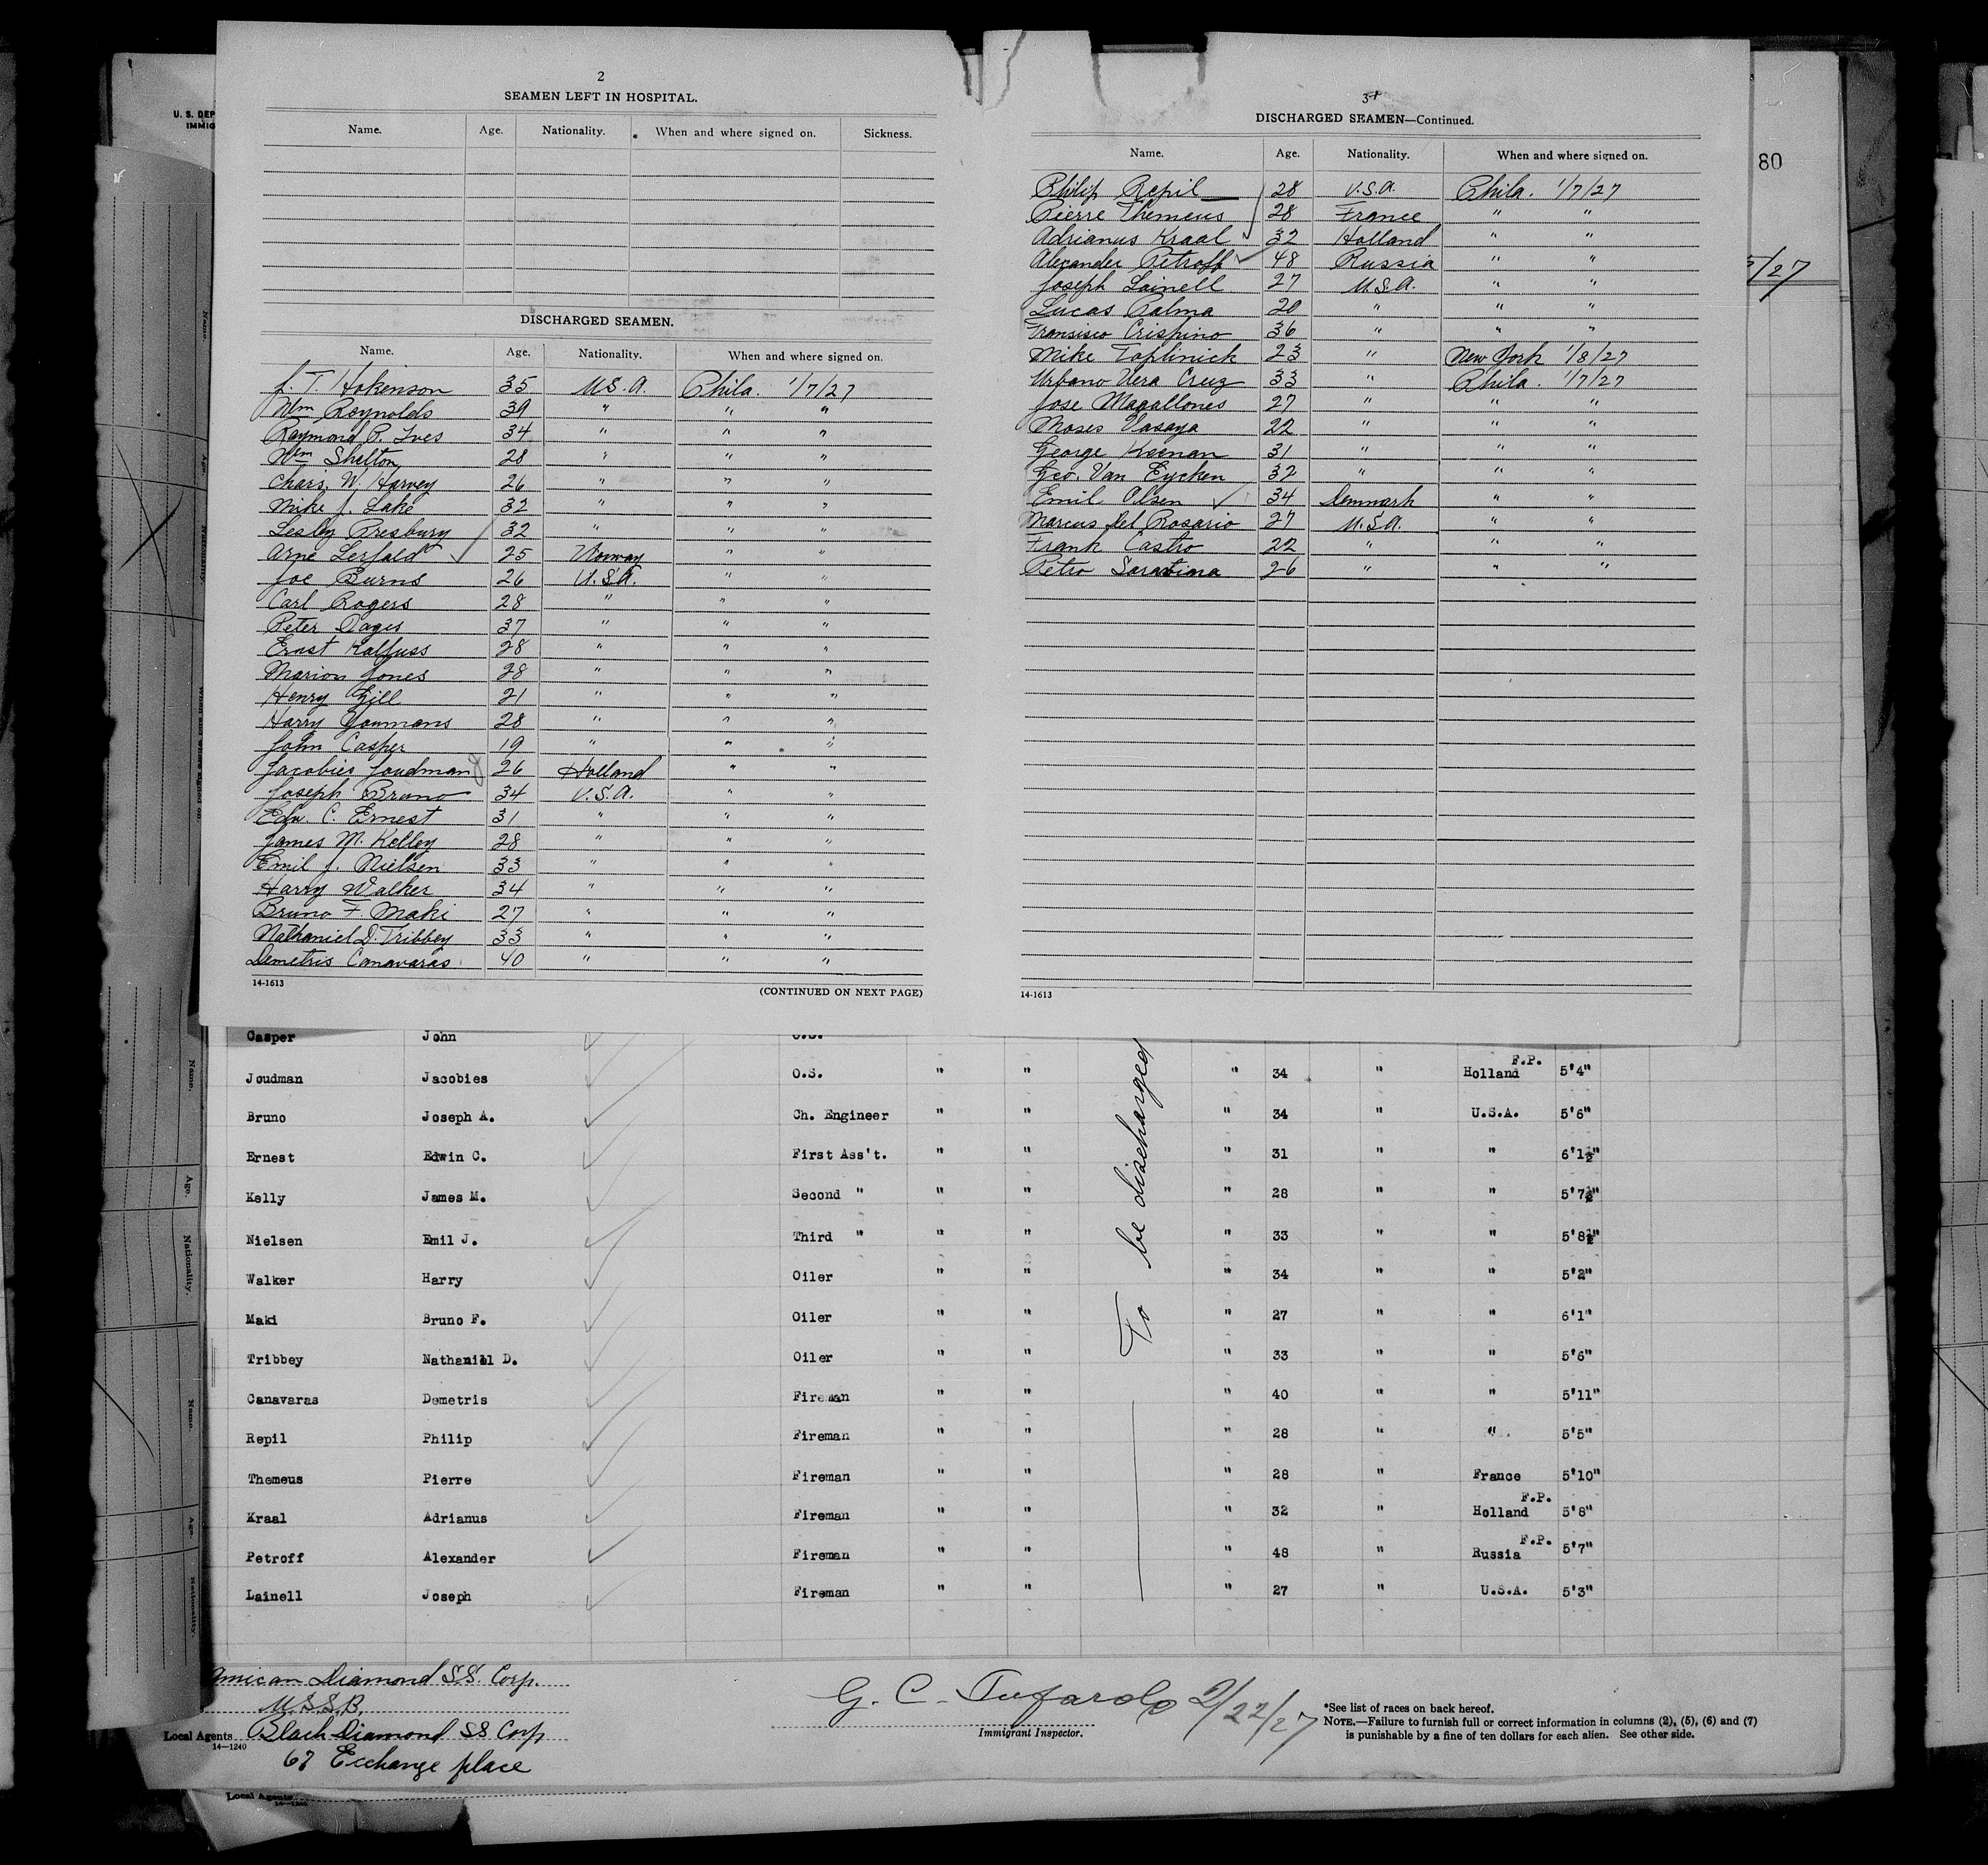 2
SEAMEN LEFT IN HOSPITAL.
Name. Age. Nationality. When and where signed on. Sickness.
DISCHARGED SEAMEN.
Name. Age. Nationality. When and where signed on.
J. T. Hokenson 35 U.S.A. Phila. 1/7/27
Wm Reynolds 39 " " "
Raymond P. Ives 34 " " "
Wm Shelton 28 " " "
Chas. W. Harvey 26 " " "
Mike J. Lake 32 " " "
Lesley Presbury 32 " " "
Arne Lerfald 25 Norway " "
Joe Burns 26 U.S.A. " "
Carl Rogers 28 " " "
Peter Dages 37 " " "
Ernst Kalfuss 28 " " "
Marion Jones 28 " " "
Henry Gill 21 " " "
Harry Youmans 28 " " "
John Casper 19 " " "
Jacobies Joudman 26 Holland " "
Joseph Bruno 34 U.S.A. " "
Edw. C. Ernest 31 " " "
James M. Kelley 28 " " "
Emil J. Nielsen 33 " " "
Harry Walker 34 " " "
Bruno F. Maki 27 " " "
Nathaniel D. Tribbey 33 " " "
Demetris Canavaras 40 " " "
14-1613
(CONTINUED ON NEXT PAGE)
3
DISCHARGED SEAMEN—Continued.
Name. Age. Nationality. When and where signed on.
Philip Repil 28 U.S.A. Phila. 1/7/27
Pierre Themeus 28 France " "
Adrianus Kraal 32 Holland " "
Alexander Petroff 48 Russia " "
Joseph Lainell 27 U.S.A. " "
Lucas Palma 20 " " "
Fransisco Crispino 36 " " "
Mike Toplinick 23 " New York 1/8/27
Urbano Vera Cruz 33 " Phila. 1/7/27
Jose Magallones 27 " " "
Moses Vasaya 22 " " "
George Keenan 31 " " "
Geo. Van Eycken 32 " " "
Emil Olsen 34 Denmark " "
Marcus del Rosario 27 U.S.A. " "
Frank Castro 22 " " "
Petro Sarabiana 26 " " "
14-1613
80
5/27
U. S. DEP
IMMIG
Casper John O.S.
Joudman Jacobies O.S. " " " 34 " F.P. Holland 5'4"
Bruno Joseph A. Ch. Engineer " " " 34 " U.S.A. 5'6"
Ernest Edwin C. First Ass't. " " " 31 " " 6'1½"
Kelly James M. Second " " " " 28 " " 5'7½"
Nielsen Emil J. Third " " " " 33 " " 5'8½"
Walker Harry Oiler " " " 34 " " 5'2"
Maki Bruno F. Oiler " " " 27 " " 6'1"
Tribbey Nathaniel D. Oiler " " " 33 " " 5'6"
Canavaras Demetris Fireman " " " 40 " " 5'11"
Repil Philip Fireman " " " 28 " " 5'5"
Themeus Pierre Fireman " " " 28 " France 5'10"
Kraal Adrianus Fireman " " " 32 " F.P. Holland 5'8"
Petroff Alexander Fireman " " " 48 " F.P. Russia 5'7"
Lainell Joseph Fireman " " " 27 " U.S.A. 5'3"
To be discharged
American Diamond S.S. Corp.
U.S.S.B.
Local Agents Black Diamond SS Corp
14—1240
67 Exchange place
G. C. Tufarolo 2/22/27
Immigrant Inspector.
*See list of races on back hereof.
NOTE.—Failure to furnish full or correct information in columns (2), (5), (6) and (7)
is punishable by a fine of ten dollars for each alien. See other side.
Local Agents
14—1240
Name.
Age.
Nationality.
Name.
Age.
Nationality.